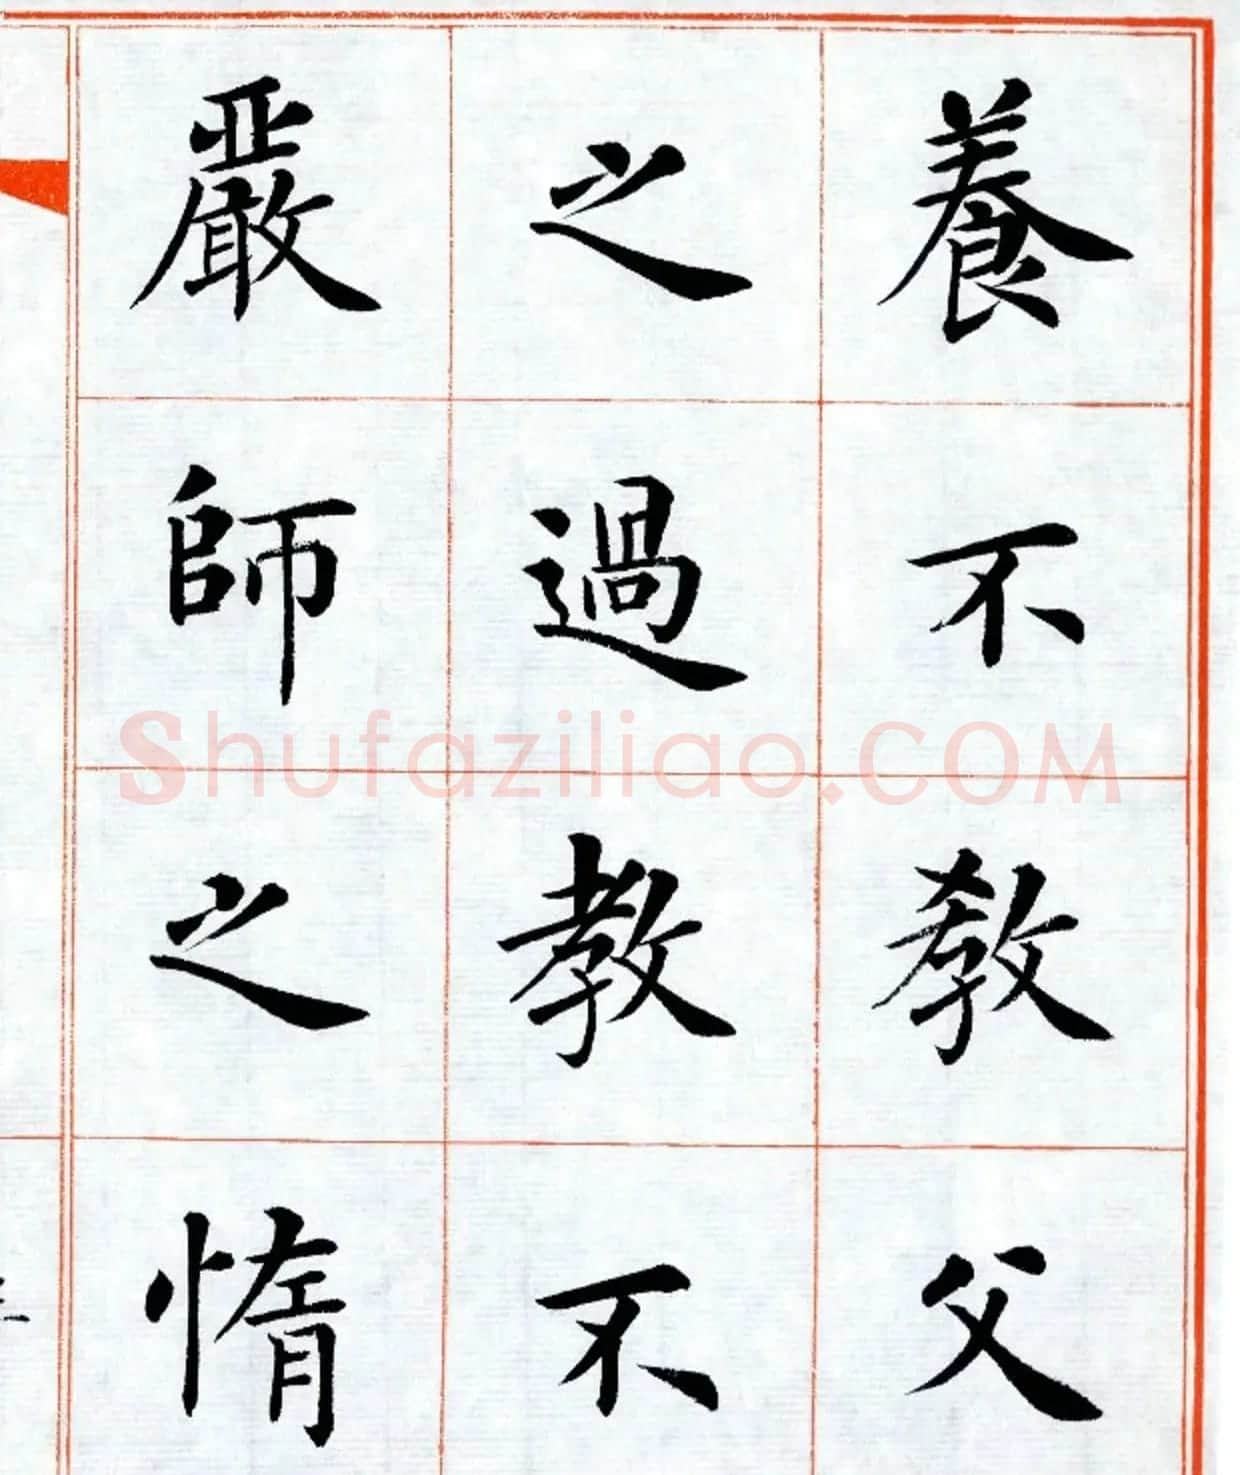 養不教父
之過教不
嚴師之惰
Shufaziliao.COM